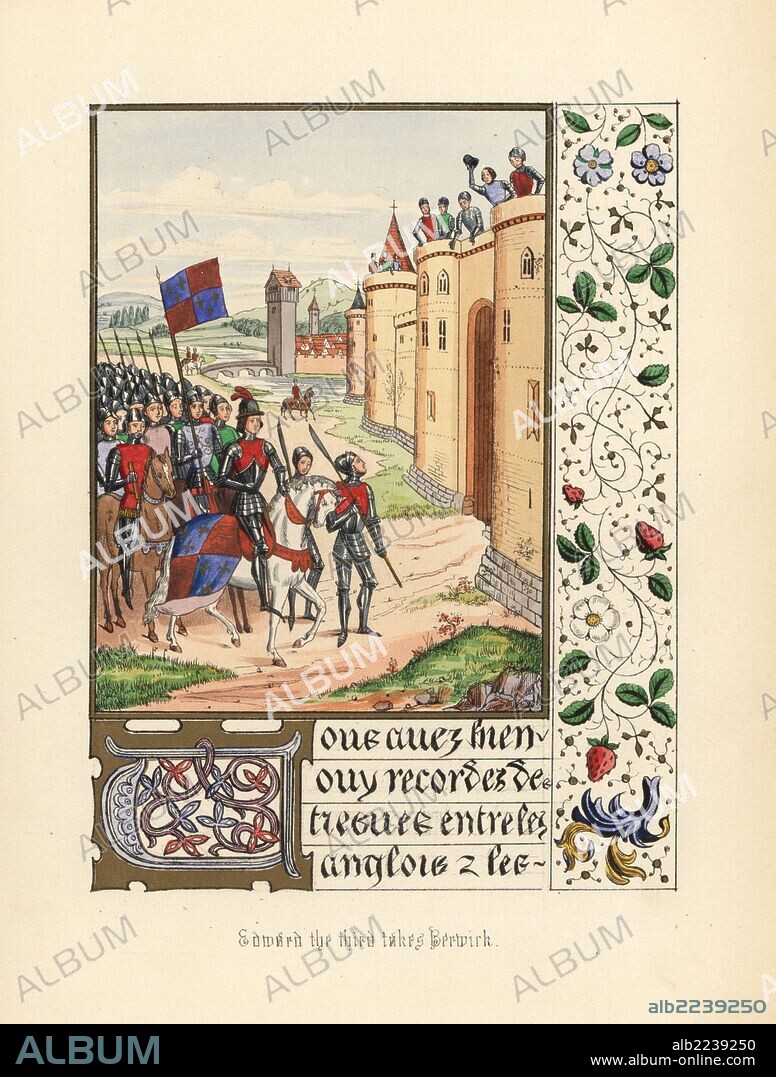 Vous auez bien
ouy recordez des
treues entre les
anglois 2 les
Edward the third takes Berwick.
ALBUM
alb2239250
ALBUM
alb2239250
www.album-online.com